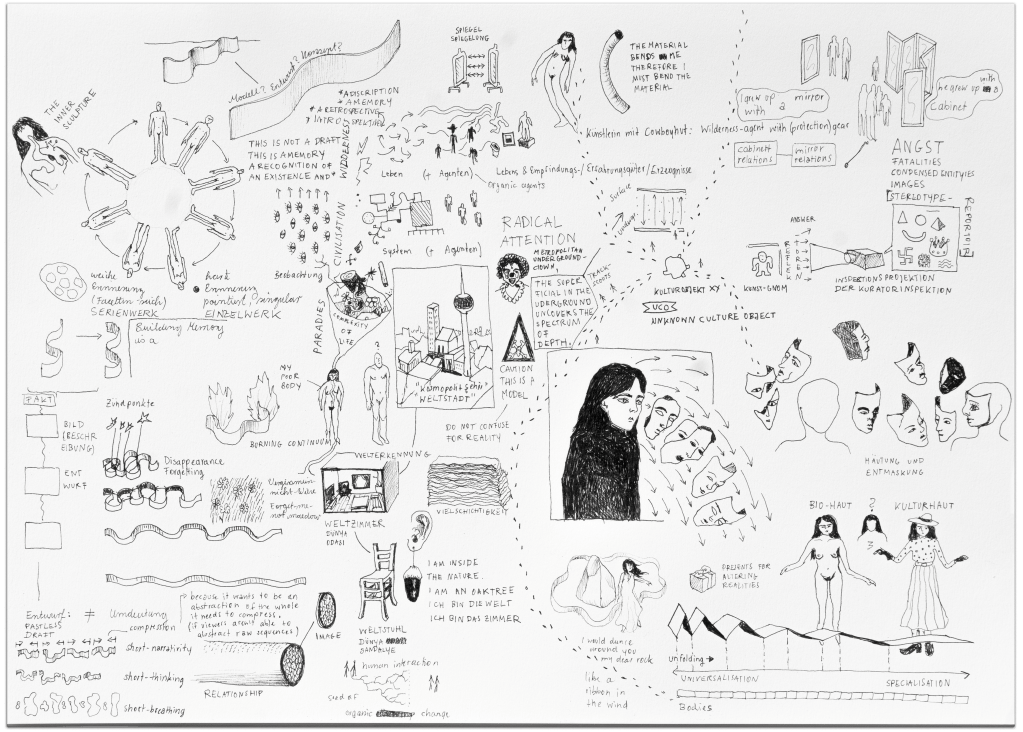 THE INNER
SCULPTURE
Modell? Entwurf?
THIS IS NOT A DRAFT
THIS IS A MEMORY
A RECOGNITION OF
AN EXISTENCE AND*
*A DISCRIPTION
*A MEMORY
*A RETROSPECTIVE
*INTROSPEKTIVE
SPIEGEL
SPIEGELUNG
THE MATERIAL
BENDS ME
THEREFORE I
MUST BEND THE
MATERIAL
Künstlerin mit Cowboyhut: Wilderness-agent with (protection)gear
I grew up a mirror
with
he grew up with a
Cabinet
cabinet
relations
mirror
relations
ANGST
FATALITIES
CONDENSED ENTITYIES
IMAGES
STEREOTYPE-
REPORTOIRE
Leben (+ Agenten)
Lebens & Empfindungs-/Erfahrungsgüter/Erzeugnisse
organic agents
CIVILISATION
System (+ Agenten)
Beobachtung
PARADIES
COMPLEXITY
OF
LIFE
RADICAL
ATTENTION
METROPOLITAN
UNDERGROUND-
CLOWN
THE SUPER
FICIAL IN THE
UDERGROUND
UNCOVERS THE
SPECTRUM
OF
DEPTH.
Surface
KULTUROBJEKT XY
UCO
UNKNOWN CULTURE OBJECT
ANSWER
REFLEKTOREN
KUNST-GNOM
INSPEKTIONSPROJEKTION
DER KURATORINSPEKTION
weiche
Erinnerung
SERIENWERK
harte
Erinnerung
pointiert, singular
EINZELWERK
Building Memory
is a
"Kosmopolitische"
WELTSTADT"
CAUTION
THIS IS A
MODEL
DO NOT CONFUSE
FOR REALITY
MY
POOR
BODY
?
BURNING CONTINUUM
FAKT
BILD
(BESCHR
EIBUNG)
ENT
WURF
Zündpunkte
Disappearance
Forgetting
Vergissmein-
nicht-Wiese
Forget-me-
not meadow
WELTERKENNUNG
WELTZIMMER
DÜNYA
ODASI
VIELSCHICHTIGKEIT
HÄUTUNG UND
ENTMASKUNG
BIO-HAUT
?
KULTURHAUT
I AM INSIDE
THE NATURE.
I AM AN OAKTREE
ICH BIN DIE WELT
ICH BIN DAS ZIMMER
WELTSTUHL
DÜNYA
SANDALYE
OBJEKTS FOR
ALTERING
REALITIES
Entwurf: ≠ Umdeutung
PASTLESS
DRAFT
compression
because it wants to be an
abstraction of the whole
it needs to compress.
(if viewers aren't able to
abstract raw sequences)
IMAGE
short-narrativity
short-thinking
short-breathing
RELATIONSHIP
human interaction
seed of
organic change
I would dance
around you
my dear rock
like a
ribbon in
the wind
unfolding
UNIVERSALISATION
SPECIALISATION
Bodies